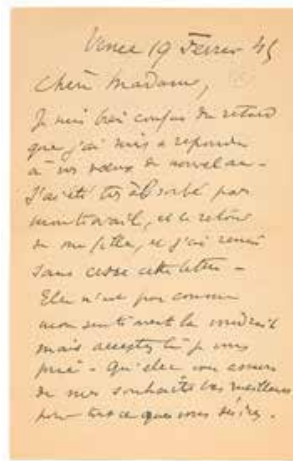 Vence 19 Fevrier 45
Chère Madame,
Je suis très confus du retard
que j'ai mis à repondre
à vos vœux de nouvel an -
J'ai été très absorbé par
mon travail, et le retour
de ma fille, et j'ai remis
sans cesse cette lettre -
Elle n'est pas comme
mon sentiment la voudrait
mais acceptez la je vous
prie - Qu'elle vous assure
de mes souhaits les meilleurs
pour tout ce que vous désirez.